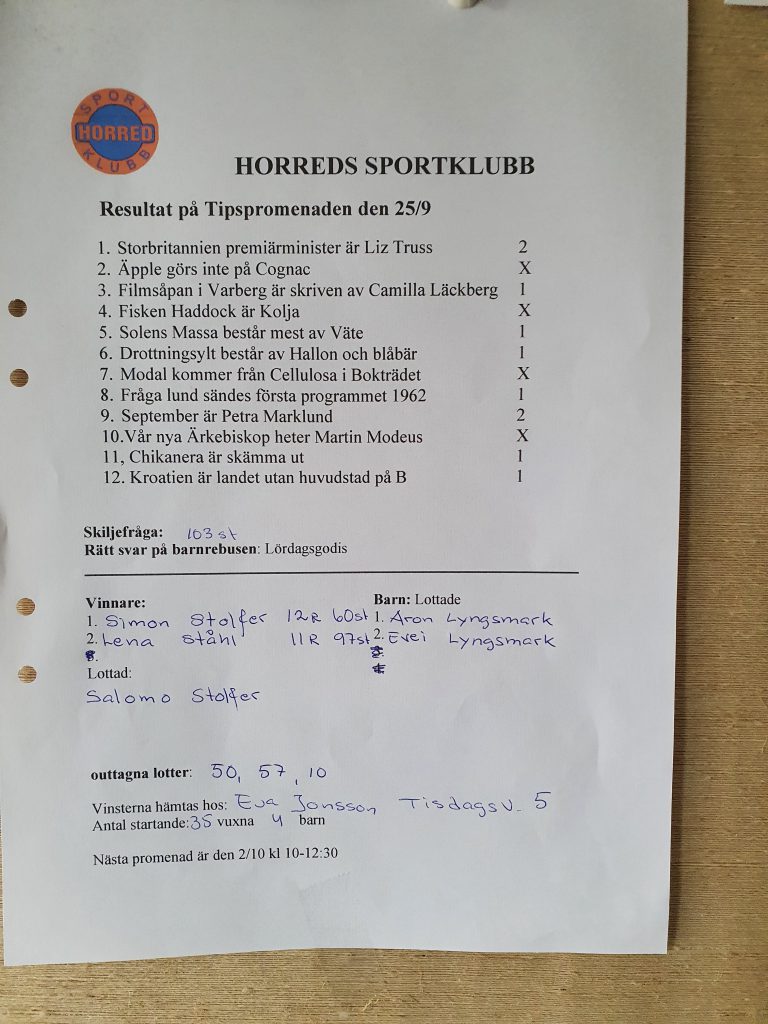 SPORT
HORRED
KLUBB
HORREDS SPORTKLUBB
Resultat på Tipspromenaden den 25/9
1. Storbritannien premiärminister är Liz Truss 2
2. Äpple görs inte på Cognac X
3. Filmsåpan i Varberg är skriven av Camilla Läckberg 1
4. Fisken Haddock är Kolja X
5. Solens Massa består mest av Väte 1
6. Drottningsylt består av Hallon och blåbär 1
7. Modal kommer från Cellulosa i Bokträdet X
8. Fråga lund sändes första programmet 1962 1
9. September är Petra Marklund 2
10.Vår nya Ärkebiskop heter Martin Modeus X
11, Chikanera är skämma ut 1
12. Kroatien är landet utan huvudstad på B 1
Skiljefråga: 103 st
Rätt svar på barnrebusen: Lördagsgodis
Vinnare: Barn: Lottade
1. Simon Stolfer 12R 60st 1. Aron Lyngsmark
2. Lena Ståhl 11R 97st 2. Evei Lyngsmark
Lottad:
Salomo Stolfer
outtagna lotter: 50, 57, 10
Vinsterna hämtas hos: Eva Jonsson Tisdagsv. 5
Antal startande: 35 vuxna 4 barn
Nästa promenad är den 2/10 kl 10-12:30